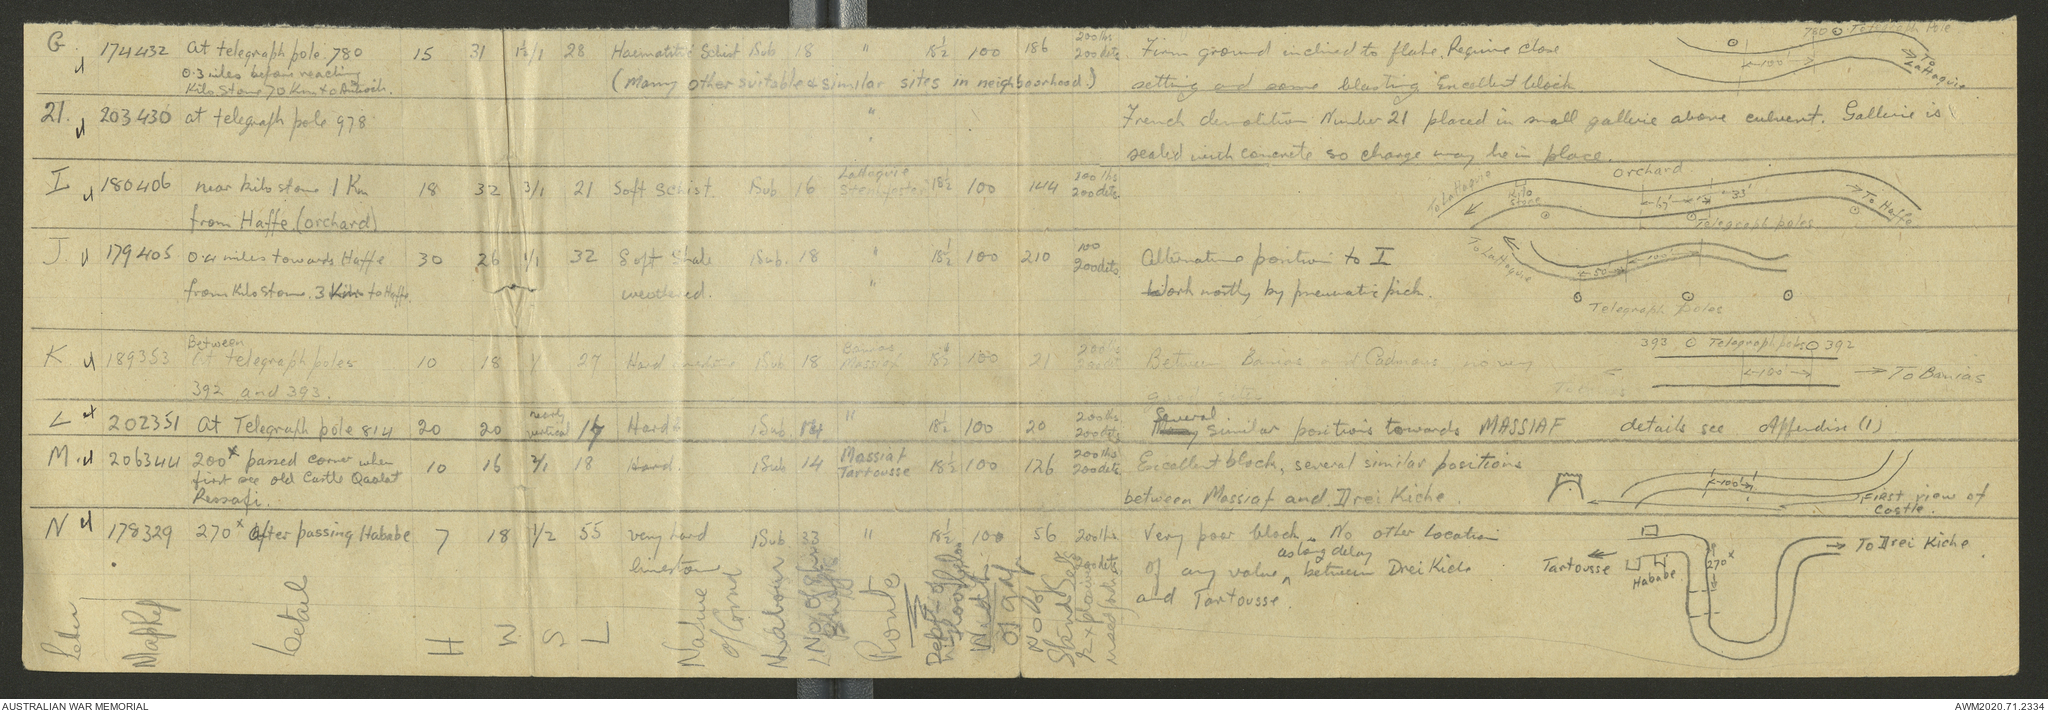 G. 174432 at telegraph pole 780 15 31 1½/1 28 Haematitic Schist 1Sub 18 " 18½ 100 186 200lbs 200dets. Firm ground inclined to flake. Require close
0.3 miles before reaching Kilo Stone 70 Km to Antioch. (Many other suitable & similar sites in neighbourhood.) setting and some blasting Excellent block
780 Telegraph Pole
100'
To LaHaquie
21. 203430 at telegraph pole 978 " French demolition Number 21 placed in small gallerie above culvert. Gallerie is
sealed with concrete so charge may be in place.
I 180406 near kilo stone 1 Km 18 32 3/1 21 Soft Schist. 1Sub 16 LaHaquie 18½ 100 144 300lbs 200dets.
from Haffe (orchard)
Orchard
To LaHaquie Kilo Stone 67' 33' To Haffe
Telegraph poles
J. 179405 0.4 miles towards Haffe 30 26 1/1 32 Soft Shale 1Sub. 18 " 18½ 100 210 100 200dets. Alternative position to I
from Kilo Stone 3 Kilo to Haffe weathered. " Work mostly by pneumatic pick.
To LaHaquie 50 100'
Telegraph Poles
K 189353 Between At telegraph poles 10 18 27 Hard 1Sub 18 Banias Massiaf 18½ 100 21 200lbs 200dets Between Banias and Cadmous
392 and 393.
393 Telegraph poles 392
100 To Banias
L 202351 at Telegraph pole 814 20 20 nearly vertical 17 Hard 1Sub 14 " 18½ 100 20 200lbs 200dets Several Many similar positions towards MASSIAF details see Appendix (1)
M. 206344 200x passed corner when 10 16 2/1 18 Hard. 1Sub 14 Massiaf Tartousse 18½ 100 126 200lbs 200dets Excellent block, several similar positions
first see old Castle Qaalat Ressafi. between Massiaf and Drei Kiche.
100'
First view of Castle.
N 178329 270x After passing Hababe 7 18 1/2 55 very hard 1Sub 33 " 18½ 100 56 200lbs 200dets Very poor block. No other location
limestone of any value as long delay between Drei Kiche
and Tartousse.
Tartousse Hababe 270x To Drei Kiche
Letter Map Ref Detail H W S L Nature of Ground Labour No of Shifts Route Depth of Width of gap No of
AUSTRALIAN WAR MEMORIAL
AWM2020.71.2334